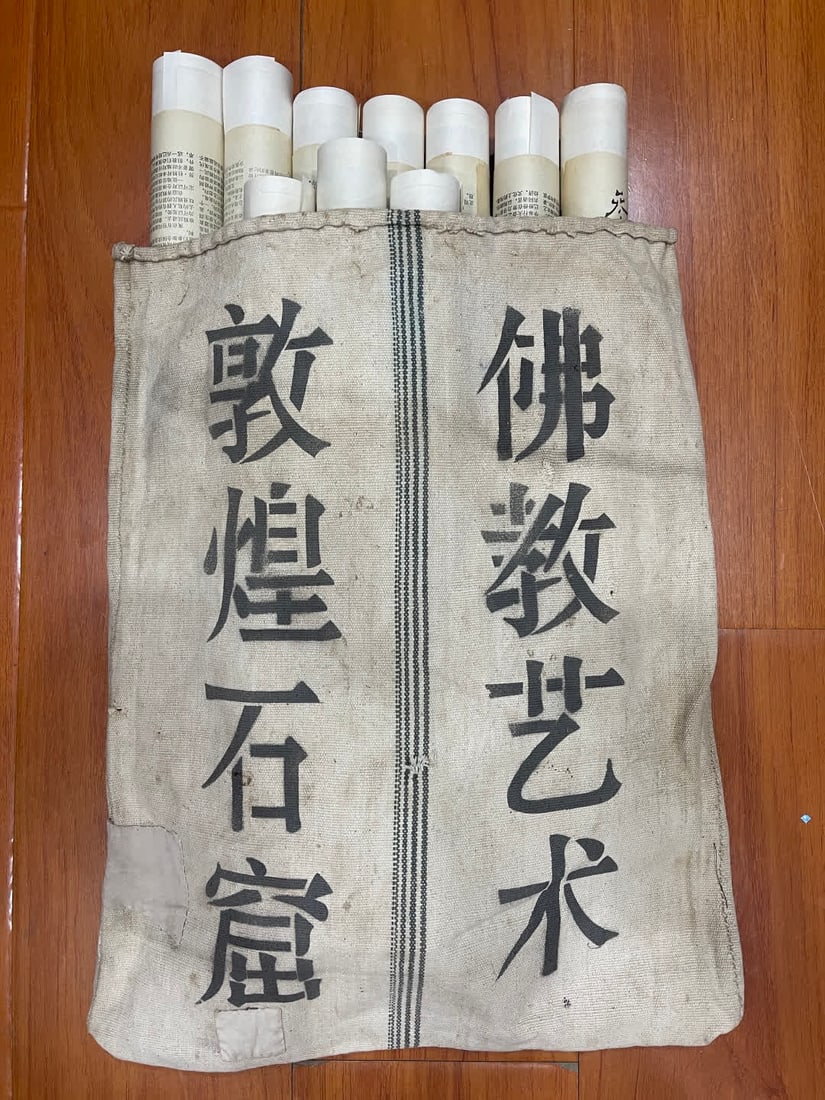 佛教艺术
敦煌石窟